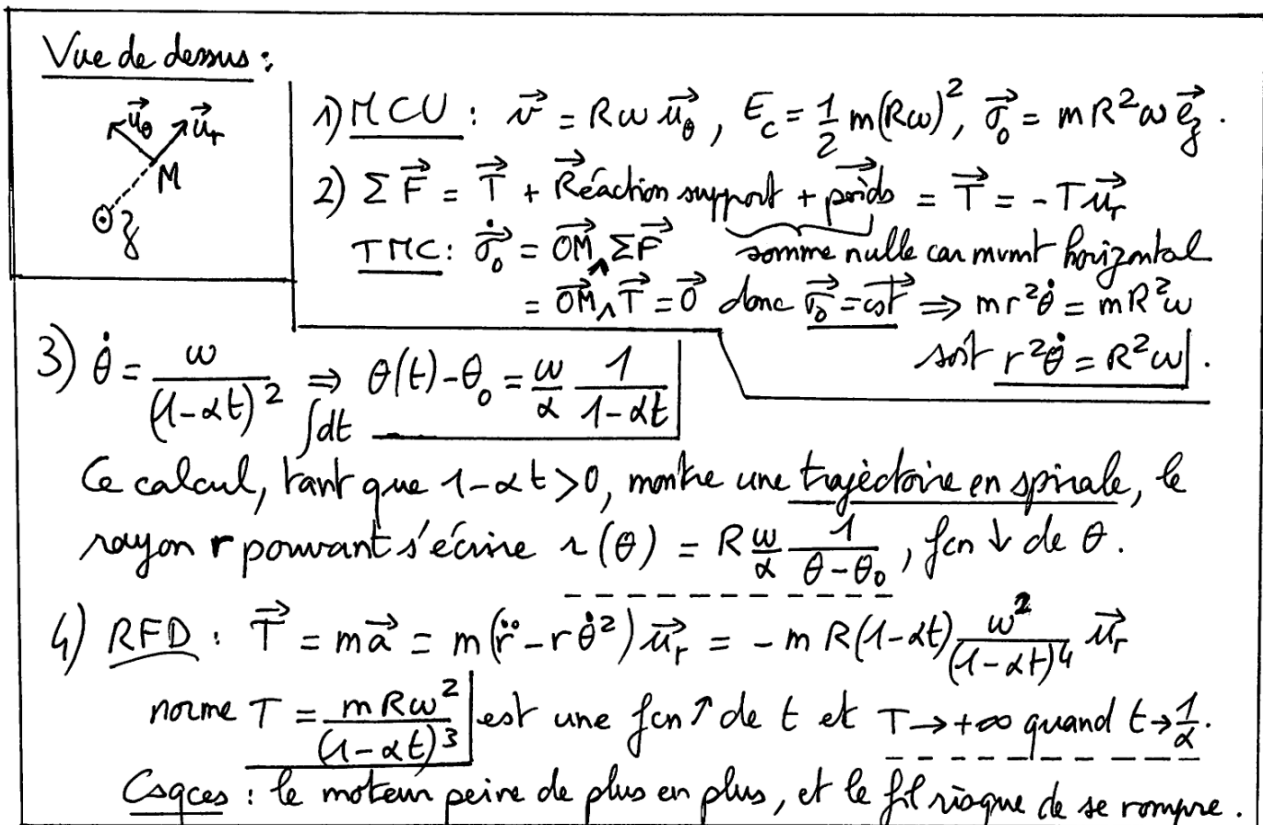 Vue de dessus :
$\vec{u_\theta}$ $\vec{u_r}$
M
z
1) MCU : $\vec{v} = R\omega\,\vec{u_\theta}$, $E_c = \frac{1}{2} m(R\omega)^2$, $\vec{\sigma_0} = mR^2\omega\,\vec{e_z}$.
2) $\Sigma\vec{F} = \vec{T} + \vec{R}$éaction support + $\overrightarrow{poids}$ = $\vec{T} = -T\vec{u_r}$
TMC : $\dot{\vec{\sigma_0}} = \overrightarrow{OM} \wedge \Sigma\vec{F}$ somme nulle car mvmt horizontal
$= \overrightarrow{OM} \wedge \vec{T} = \vec{0}$ donc $\vec{\sigma_0} = \overrightarrow{cst}$ $\Rightarrow mr^2\dot{\theta} = mR^2\omega$
soit $r^2\dot{\theta} = R^2\omega$.
3) $\dot{\theta} = \frac{\omega}{(1-\alpha t)^2} \underset{\int dt}{\Rightarrow} \theta(t) - \theta_0 = \frac{\omega}{\alpha}\frac{1}{1-\alpha t}$
Ce calcul, tant que $1-\alpha t > 0$, montre une trajectoire en spirale, le
rayon r pouvant s'écrire $r(\theta) = R\frac{\omega}{\alpha}\frac{1}{\theta-\theta_0}$, fcn ↓ de θ.
4) RFD : $\vec{T} = m\vec{a} = m(\ddot{r} - r\dot{\theta}^2)\vec{u_r} = -mR(1-\alpha t)\frac{\omega^2}{(1-\alpha t)^4}\vec{u_r}$
norme $T = \frac{mR\omega^2}{(1-\alpha t)^3}$ est une fcn ↑ de t et $T \to +\infty$ quand $t \to \frac{1}{\alpha}$.
Csqces : le moteur peine de plus en plus, et le fil risque de se rompre.